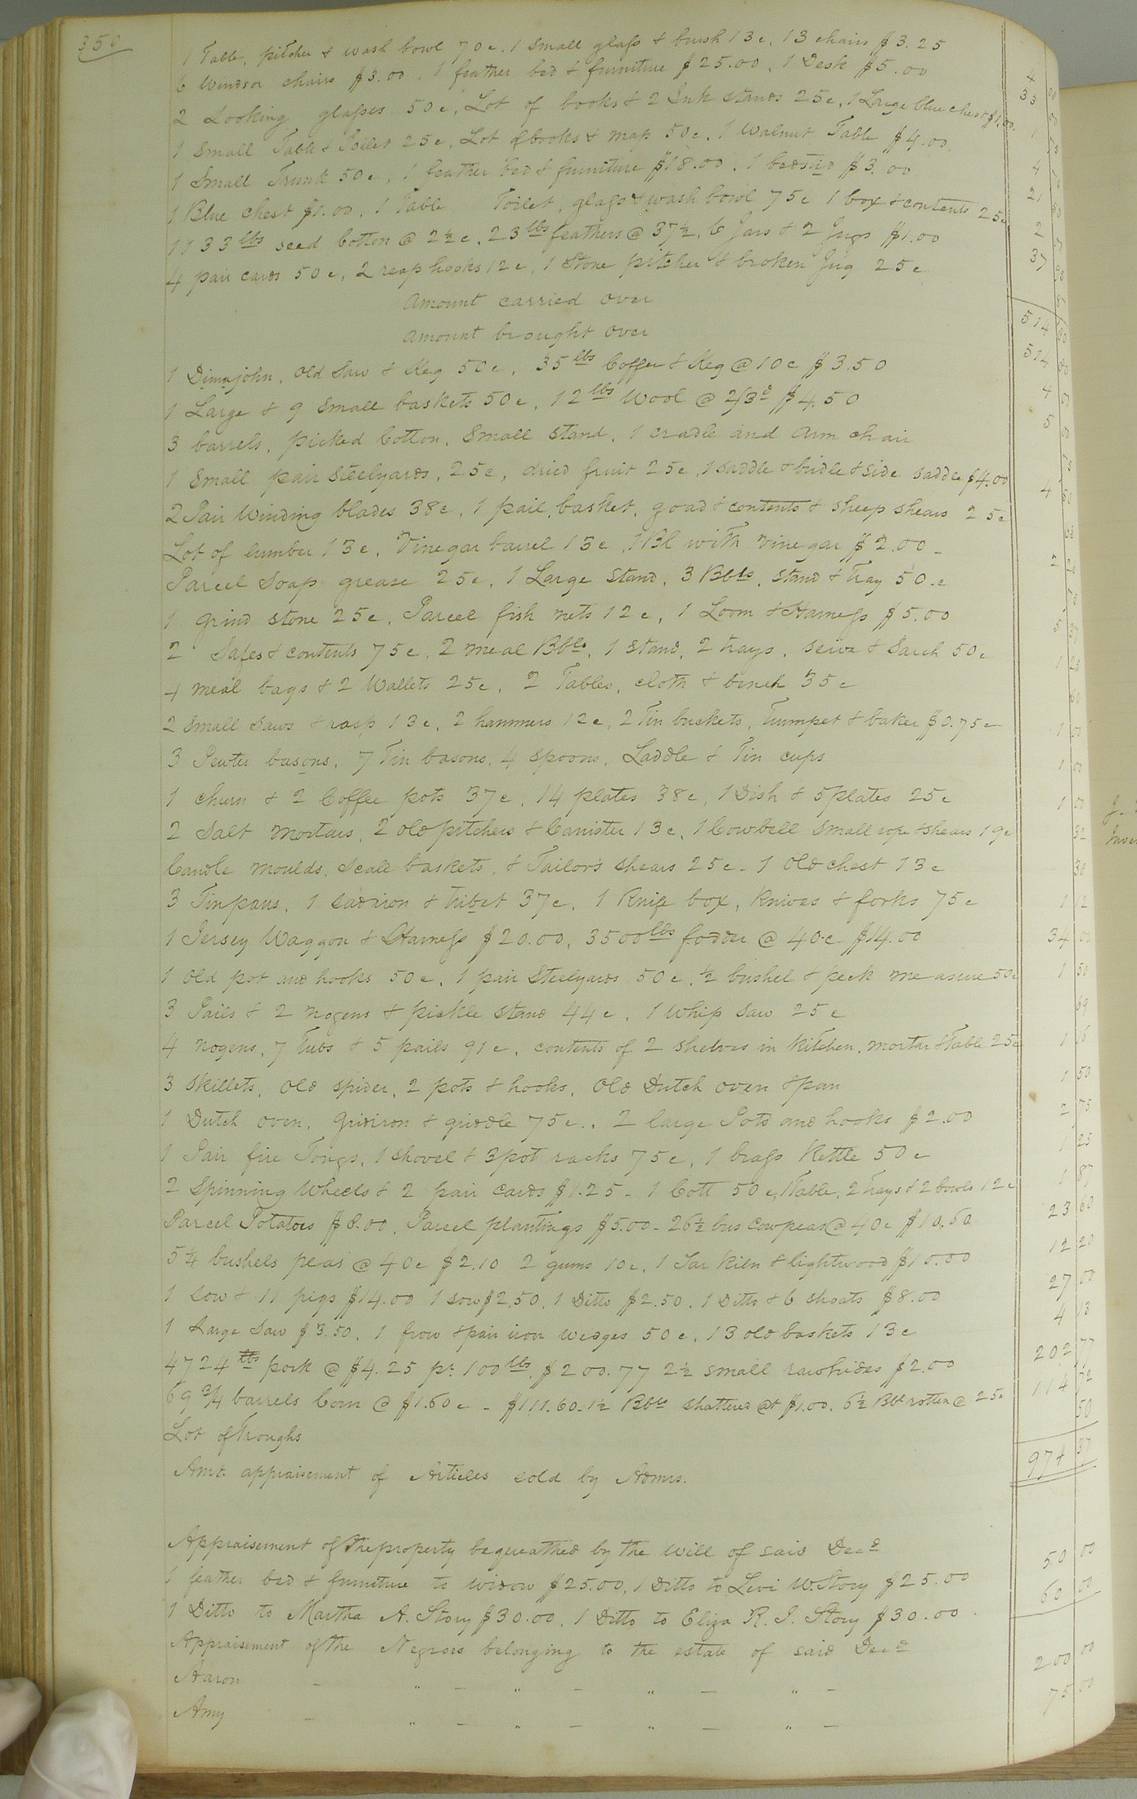 350
1 Table, pitcher & wash bowl 70c, 1 Small glass & brush 13c, 13 chairs $3.25
6 Windsor chairs $3.00, 1 feather bed & furniture $25.00, 1 Desk $5.00 33
2 Looking glasses 50c, Lot of books & 2 Ink stands 25c, 1 Large blue chest $1.00 1
1 Small Table & Toilet 25c, Lot of books & map 50c, 1 Walnut Table $4.00 4
1 Small Trunk 50c, 1 feather bed & furniture $18.00, 1 bedstead $3.00 21
1 Blue chest $1.00, 1 Table Toilet, glass & wash bowl 75c 1 box & contents 25c 2
1133 lbs seed Cotton @ 2½c, 23 lbs feathers @ 37½, 6 Jars & 2 Jugs $1.00 37
4 pair cards 50c, 2 reap hooks 12c, 1 Stone pitcher & broken Jug 25c
Amount carried over 514
Amount brought over 514
1 Dimajohn, old Saw & Keg 50c, 35 lbs Coffee & Keg @ 10c $3.50 4
1 Large & 9 Small baskets 50c, 12 lbs Wool @ 2/3d $4.50 5
3 barrels, picked Cotton, Small stand, 1 cradle and Arm chair
1 Small pair Steelyards, 25c, dried fruit 25c, 1 Saddle & bridle & Side Saddle $4.00 4 50
2 Pair Winding blades 38c, 1 pail, basket, goad & contents & Sheep Shears 25c
Lot of lumber 13c, Vinegar barrel 13c, 1 Bl with vinegar $2.00 2
Parcel Soap grease 25c, 1 Large Stand, 3 Bbls, Stand & Tray 50c
1 grind stone 25c, Parcel fish nets 12c, 1 Loom & Harness $5.00 5
2 Safes & contents 75c, 2 meal Bbls, 1 Stand, 2 trays, Seive & Sarch 50c 1 25
4 meal bags & 2 Wallets 25c, 2 Tables, cloth & bench 35c 60
2 Small Saws & rasp 13c, 2 hammers 12c, 2 Tin buckets, Trumpet & baker $0.75c 1
3 Pewter basons, 7 Tin basons, 4 Spoons, Laddle & Tin cups 1
1 churn & 2 Coffee pots 37c, 14 plates 38c, 1 Dish & 5 plates 25c 1 00
2 Salt Mortars, 2 old pitchers & Canister 13c, 1 Cowbell Small rope & shears 19c 32
Candle moulds, Scale baskets, & Tailor's Shears 25c - 1 old chest 13c 38
3 Tinpans, 1 Sadiron & tribet 37c, 1 Knife box, Knives & forks 75c 1 12
1 Jersey Waggon & Harness $20.00, 3500 lbs fodder @ 40c $14.00 34 00
1 old pot and hooks 50c, 1 pair Steelyards 50c, ½ bushel & peck measure 50c 1 50
3 Pails & 2 nogens & pickle Stand 44c, 1 Whip Saw 25c 69
4 nogens, 7 Tubs & 5 pails 91c, contents of 2 Shelves in Kitchen, mortar & Table 25c 1 16
3 Skillets, old spider, 2 pots & hooks, old Dutch oven & pan 1 50
1 Dutch oven, Gridiron & griddle 75c., 2 large Pots and hooks $2.00 2 75
1 Pair fire Tongs, 1 Shovel & 3 pot racks 75c, 1 brass Kettle 50c 1 25
2 Spinning Wheels & 2 pair cards $1.25 - 1 Cott 50c, 1 Table, 2 Trays & 2 bowls 12c 1 87
Parcel Potatoes $8.00, Parcel plantings $5.00 - 26½ bus Cowpeas @ 40c $10.60 23 60
5¼ bushels peas @ 40c $2.10 2 gums 10c, 1 Tar Kiln & lightwood $10.00 12 20
1 Sow & 11 pigs $14.00 1 Sow $2.50, 1 Ditto $2.50, 1 Ditto & 6 shoats $8.00 27 00
1 Large Saw $3.50, 1 frow & pair iron Wedges 50c, 13 old baskets 13c 4 13
4724 lbs pork @ $4.25 pr 100 lbs, $200.77 2½ Small rawhides $2.00 202 77
69¾ barrels Corn @ $1.60c - $111.60 - 1½ Bbls Shattered @ $1.00, 6½ Bbl rotten @ 25c 114 72
Lot of Troughs 50
Amt. appraisement of Articles sold by Admrs. 974 37
Appraisement of the property bequeathed by the Will of said Decd
1 feather bed & furniture to Widow $25.00, 1 Ditto to Levi W Story $25.00 50 00
1 Ditto to Martha A. Story $30.00, 1 Ditto to Eliza R. J. Story $30.00. 60 00
Appraisement of the Negroes belonging to the estate of said Decd
Aaron - " - " - " - " - 200 00
Amy - " - " - " - " - 75 00